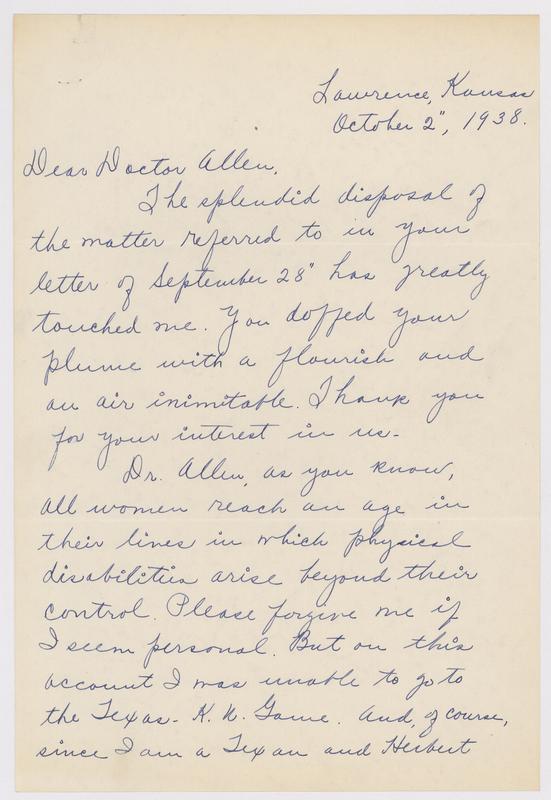 Lawrence, Kansas
October 2", 1938.
Dear Doctor Allen,
The splendid disposal of
the matter referred to in your
letter of September 28" has greatly
touched me. You doffed your
plume with a flourish and
an air inimitable. Thank you
for your interest in us.
Dr. Allen, as you know,
all women reach an age in
their lives in which physical
disabilities arise beyond their
control. Please forgive me if
I seem personal. But on this
account I was unable to go to
the Texas - K. U. Game. And, of course,
since I am a Texan and Herbert